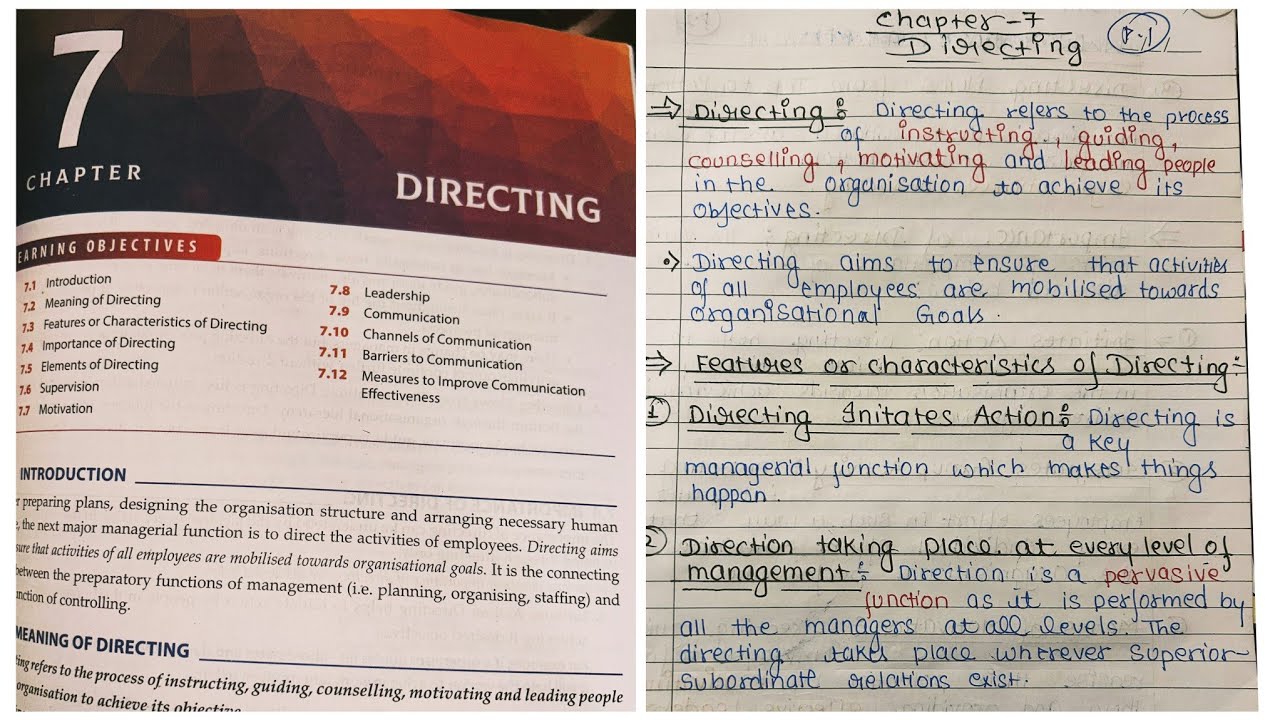 7
CHAPTER
DIRECTING
EARNING OBJECTIVES
7.1 Introduction
7.2 Meaning of Directing
7.3 Features or Characteristics of Directing
7.4 Importance of Directing
7.5 Elements of Directing
7.6 Supervision
7.7 Motivation
7.8 Leadership
7.9 Communication
7.10 Channels of Communication
7.11 Barriers to Communication
7.12 Measures to Improve Communication
Effectiveness
INTRODUCTION
preparing plans, designing the organisation structure and arranging necessary human
the next major managerial function is to direct the activities of employees. Directing aims
that activities of all employees are mobilised towards organisational goals. It is the connecting
between the preparatory functions of management (i.e. planning, organising, staffing) and
of controlling.
MEANING OF DIRECTING
refers to the process of instructing, guiding, counselling, motivating and leading people
organisation to achieve its
Chapter-7
Directing
P-1
⇒ Directing : Directing refers to the process
of instructing, guiding,
counselling, motivating and leading people
in the organisation to achieve its
objectives.
•> Directing aims to ensure that activities
of all employees are mobilised towards
organisational Goals.
⇒ Features or characteristics of Directing:-
1 Directing Initates Action: Directing is
a key
managerial function which makes things
happan.
2 Direction taking place at every level of
management: Direction is a pervasive
function as it is performed by
all the managers at all levels. The
directing takes place wherever superior-
subordinate relations exist.